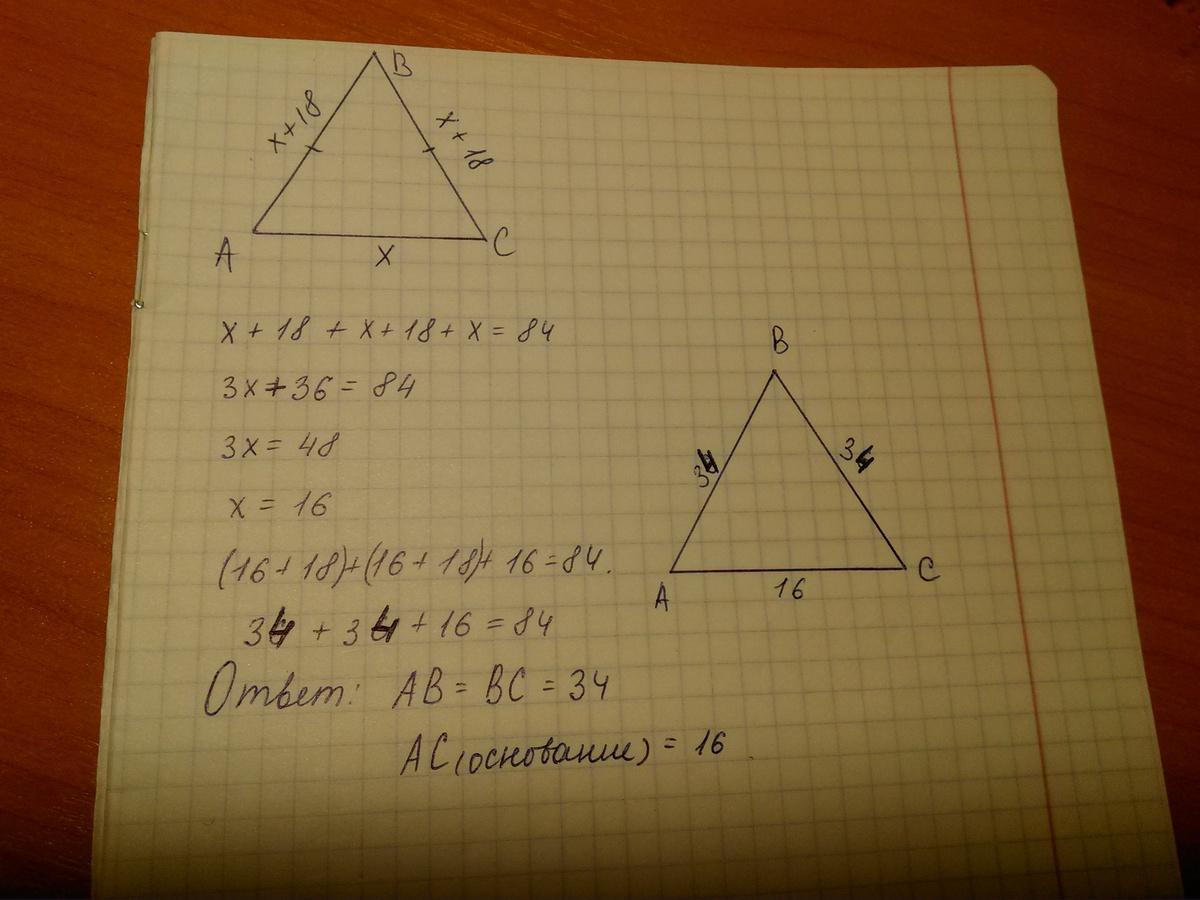 B
x + 18
x + 18
A
x
C
x + 18 + x + 18 + x = 84
3x + 36 = 84
3x = 48
x = 16
(16 + 18) + (16 + 18) + 16 = 84.
34 + 34 + 16 = 84
Ответ: AB = BC = 34
AC (основание) = 16
B
34
34
A
16
C